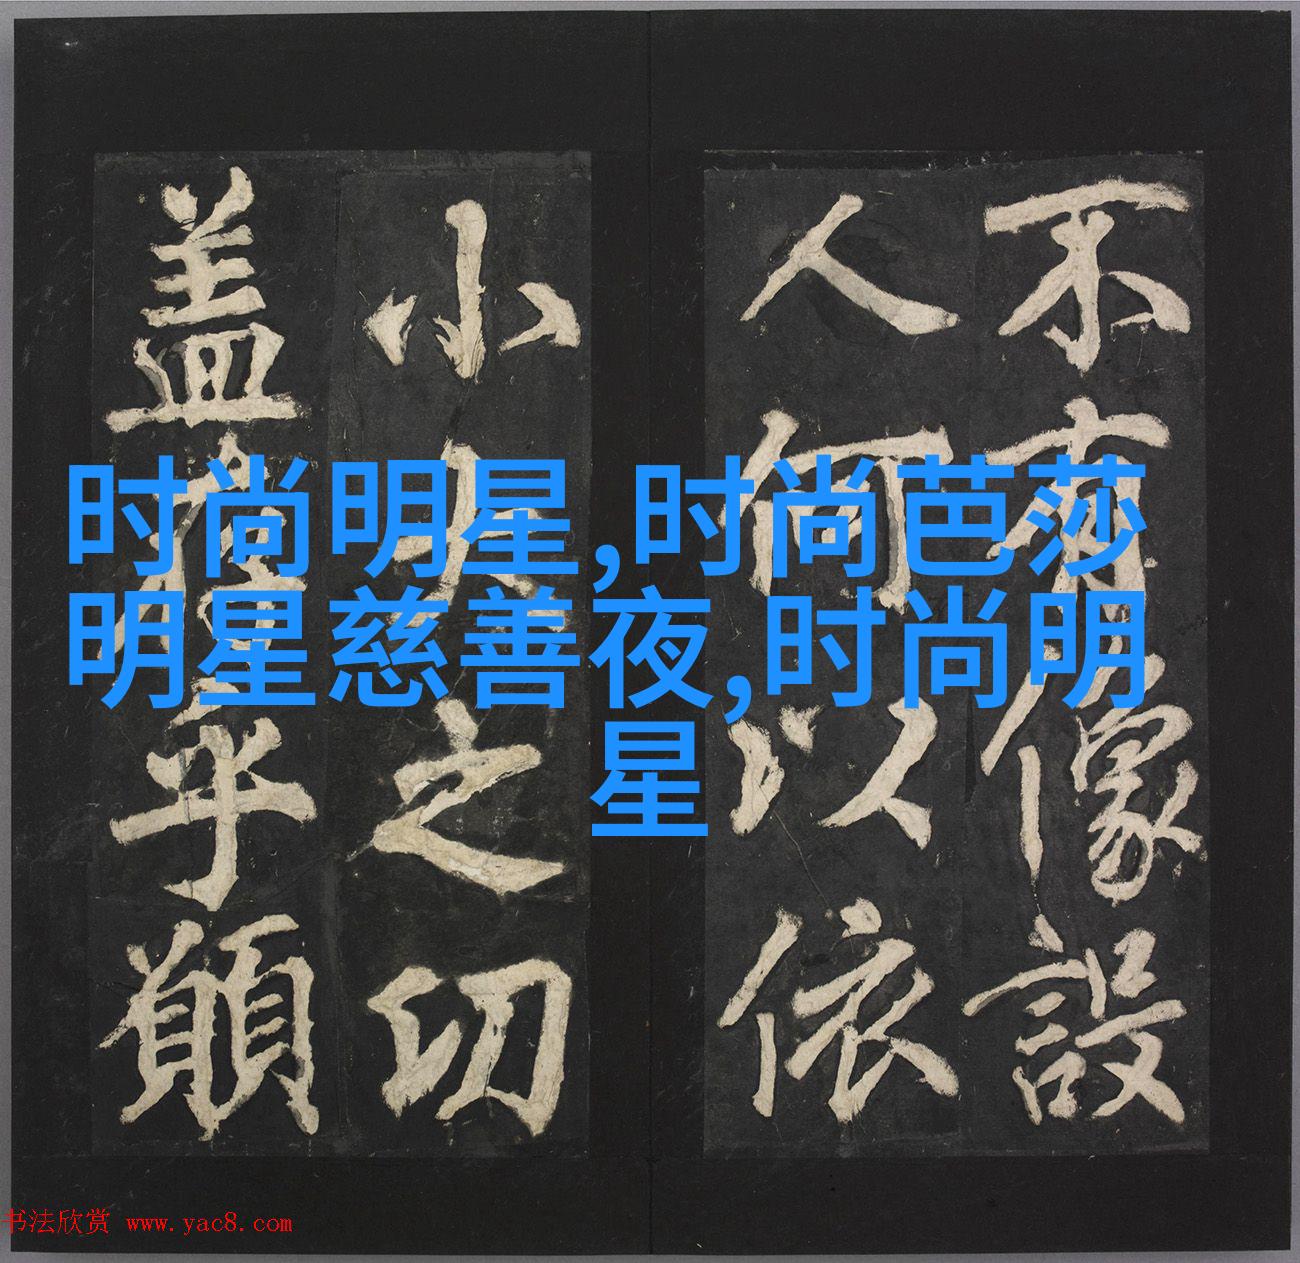 时尚明星,时尚芭莎
明星慈善夜,时尚明
星
不有像設
人何以依
小大之切
盖乎
书法欣赏 www.yac8.com